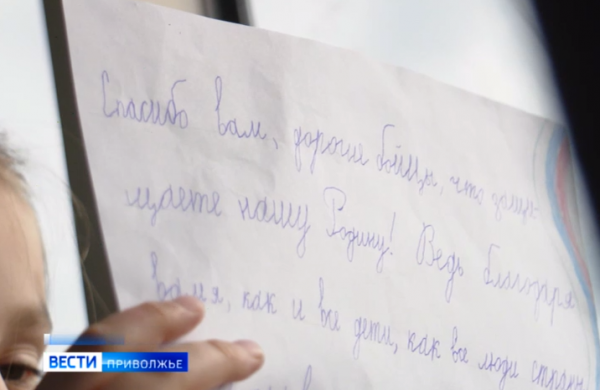 Спасибо вам, дорогие бойцы, что защи-
щаете нашу Родину! Ведь благодаря
вам я, как и все дети, как все люди страны
ВЕСТИ ПРИВОЛЖЬЕ